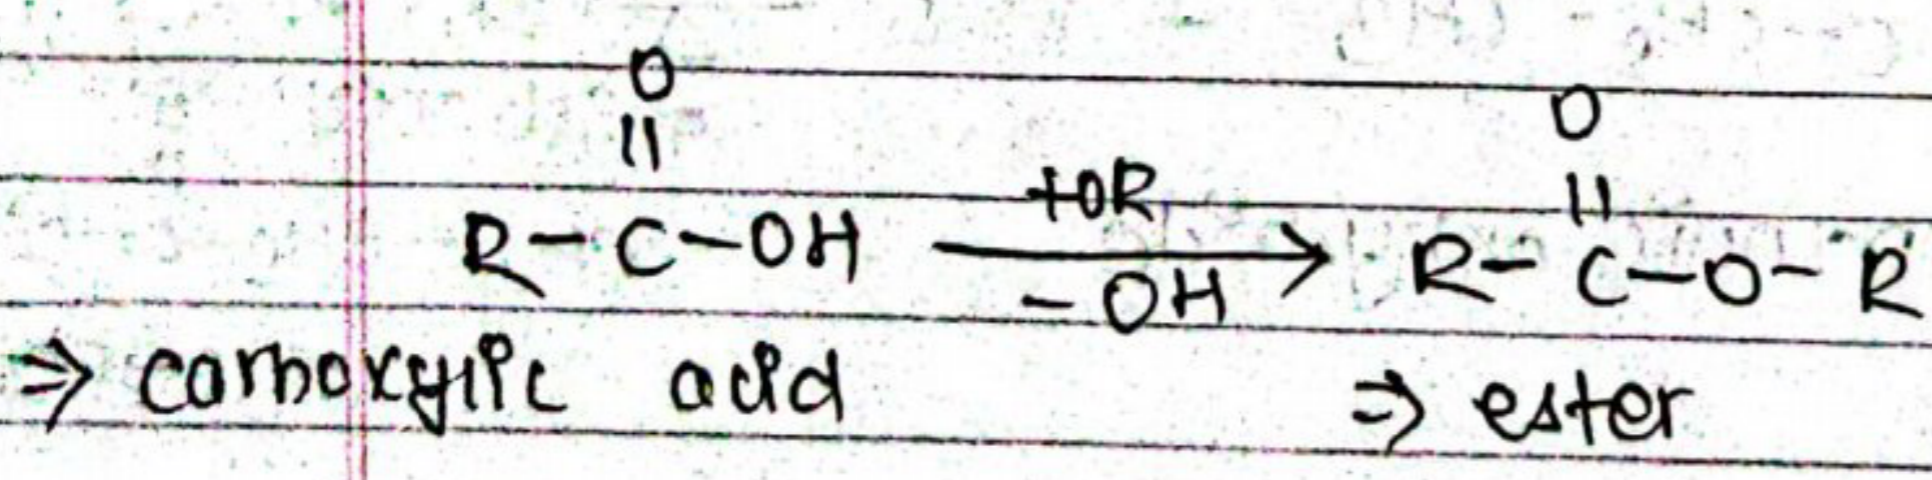 O O
|| ||
R-C-OH +OR -OH → R-C-O-R'
⇒ carboxylic acid ⇒ ester